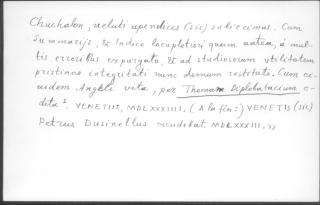 Chuchalon, veluti apendices (sic) subiecimus. Cum
Summarijs, & Indice locupletiori quam antea, a mul-
tis erroribus expurgata, & ad studiosorum utilitatem
pristinae integritati nunc demum restituta. Cum ei-
usdem Angeli vita, per Thomam Diplobatacium e-
dita. VENETIIS, MDLXXXIIII. (A la fin:) VENETIS (sic)
Petrus Dusinellus excudebat. MDLXXXIII.